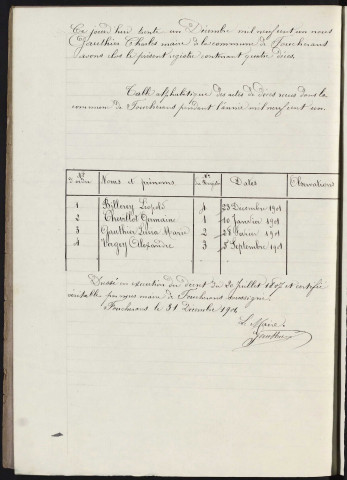 Ce jourd'hui trente un Décembre mil neuf cent un nous
Gauthier Charles maire de la commune de Foucherans
avons clos le présent registre contenant quatre décès.
Table alphabétique des actes de décès reçus dans la
commune de Foucherans pendant l'année mil neuf cent un.
Nos d'ordre Noms et prénoms Nos du Registre Dates Observations
1 Billerey Léopold 4 23 Décembre 1901
2 Germaine 1 10 Janvier 1901
3 Gauthier Marie 2 28 1901
4 Alexandre 3 5 Septembre 1901
Dressé en exécution du décret du 20 Juillet 1807 et certifié
véritable par nous maire de Foucherans soussigné
Foucherans le 31 Décembre 1901
Le Maire
Gauthier